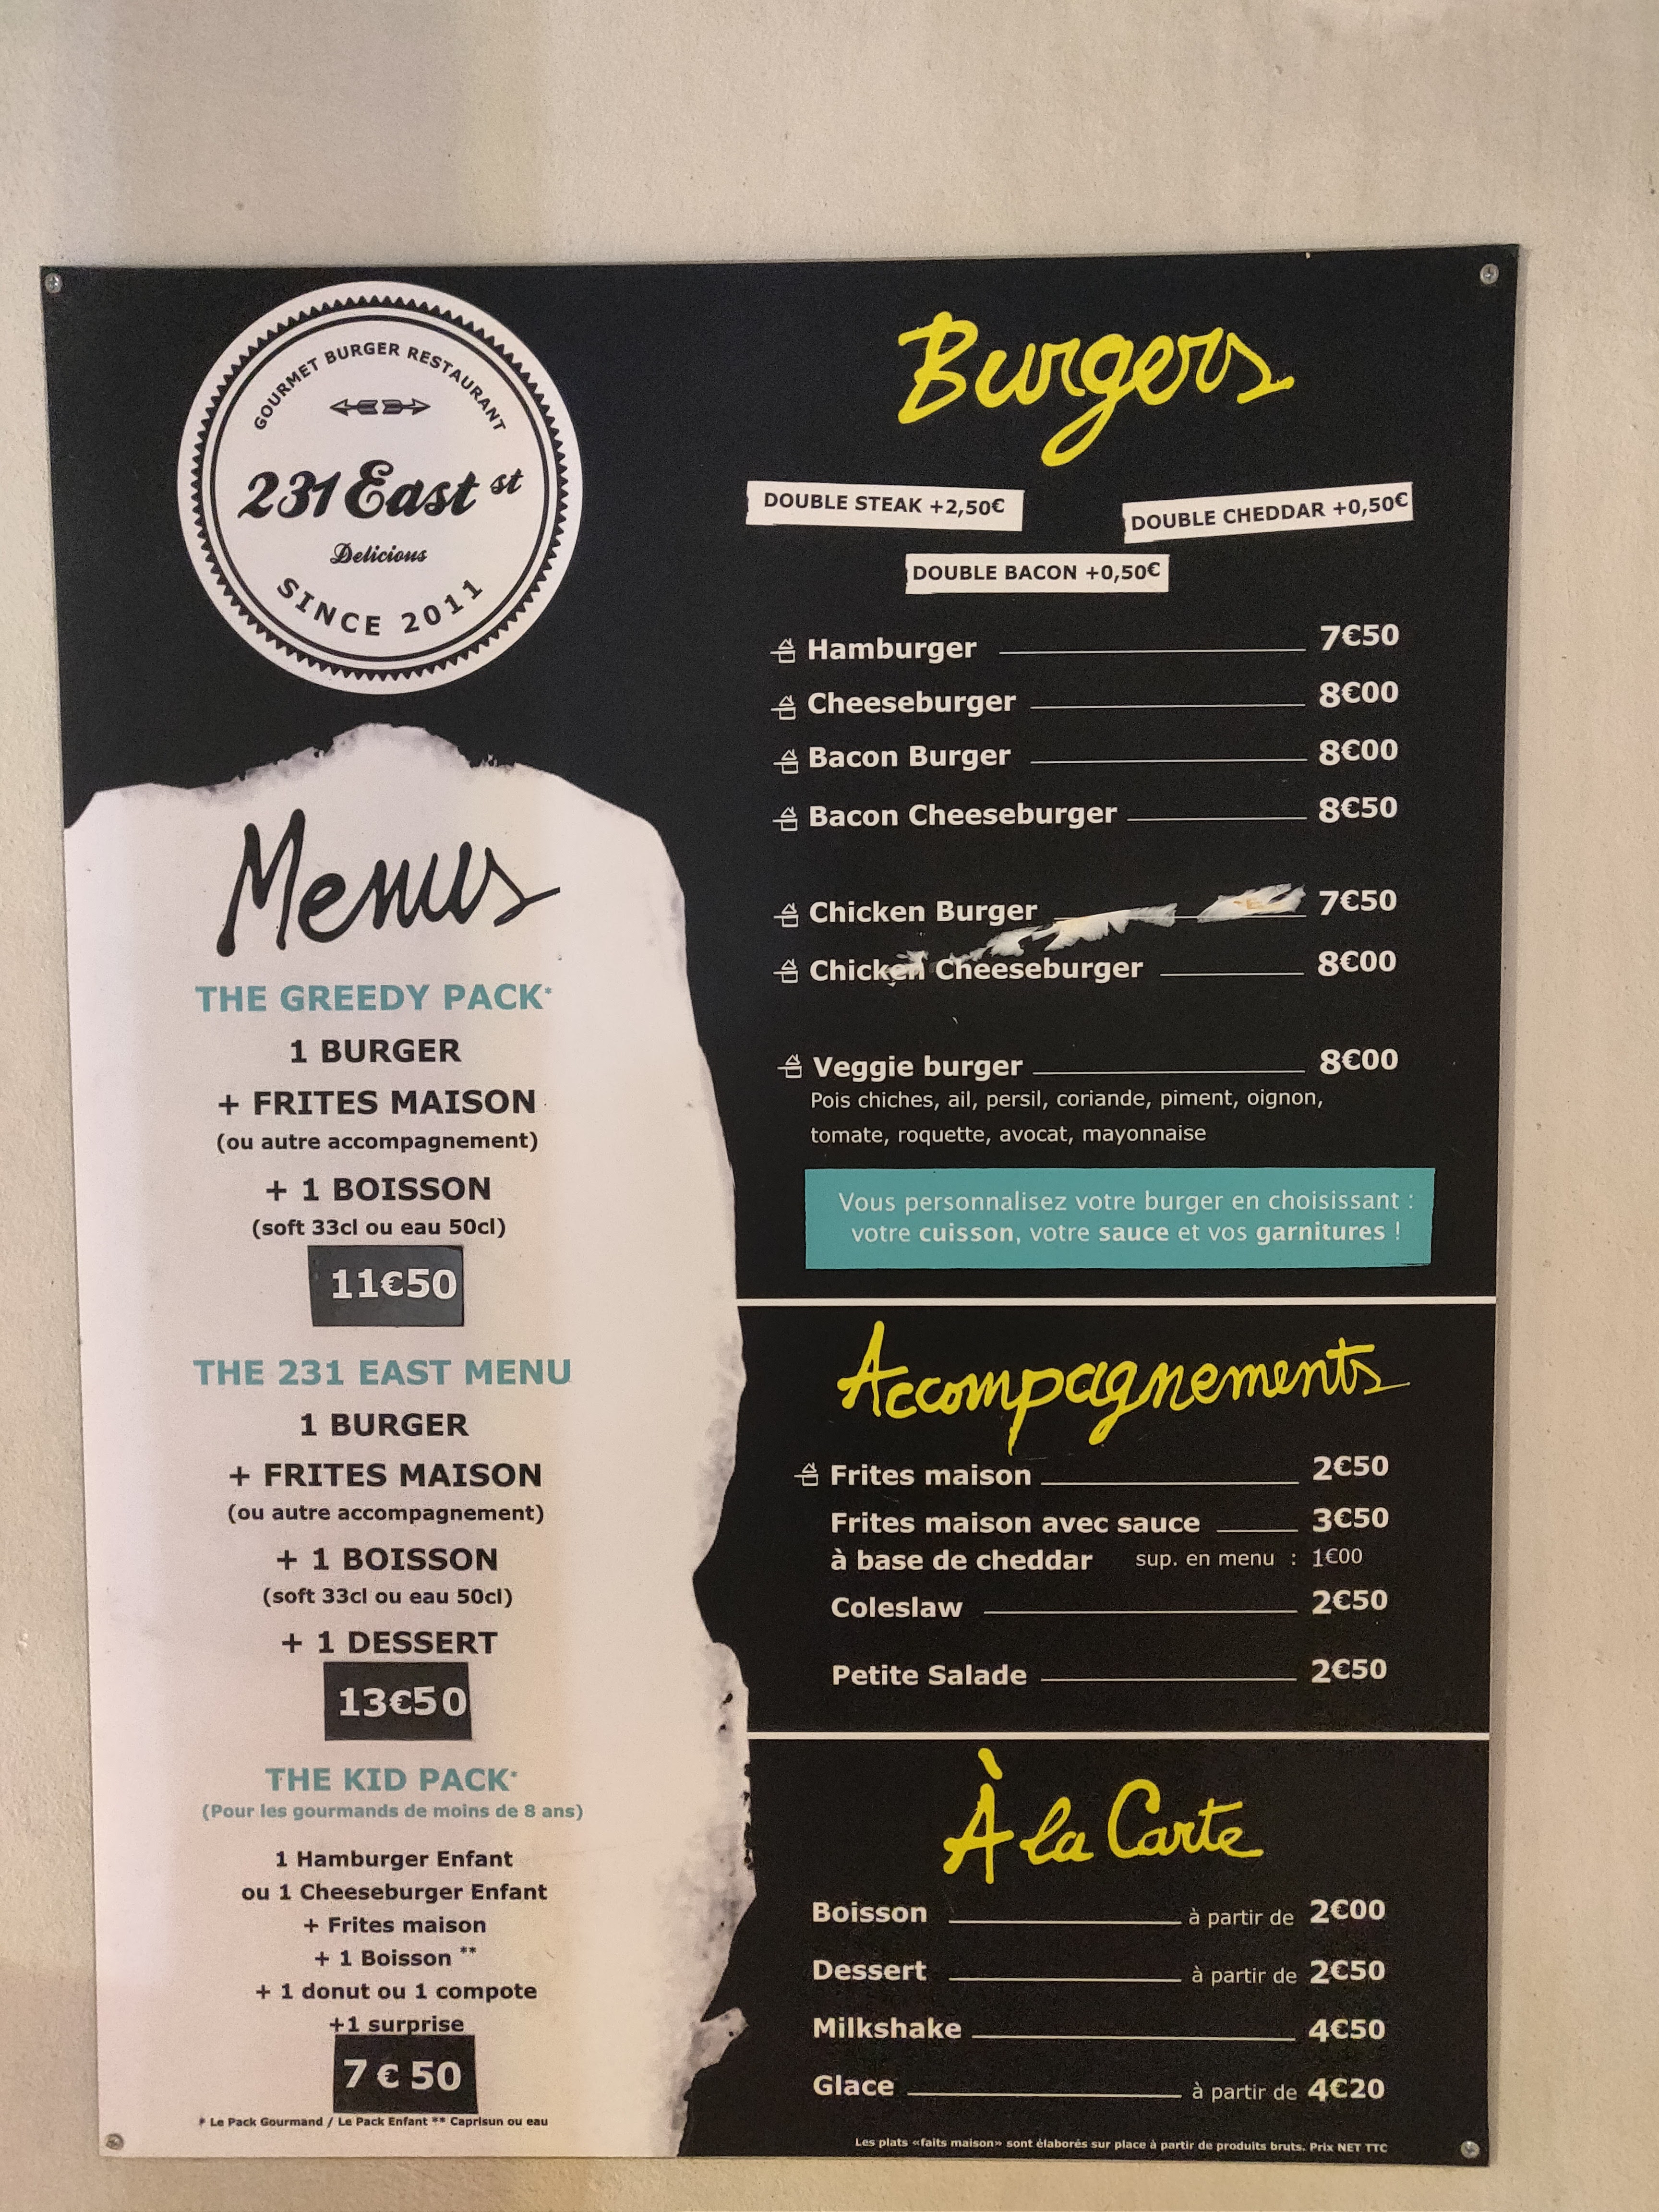 GOURMET BURGER RESTAURANT
231 East st
Delicious
SINCE 2011
Menus
THE GREEDY PACK*
1 BURGER
+ FRITES MAISON
(ou autre accompagnement)
+ 1 BOISSON
(soft 33cl ou eau 50cl)
11€50
THE 231 EAST MENU
1 BURGER
+ FRITES MAISON
(ou autre accompagnement)
+ 1 BOISSON
(soft 33cl ou eau 50cl)
+ 1 DESSERT
13€50
THE KID PACK*
(Pour les gourmands de moins de 8 ans)
1 Hamburger Enfant
ou 1 Cheeseburger Enfant
+ Frites maison
+ 1 Boisson **
+ 1 donut ou 1 compote
+1 surprise
7 € 50
* Le Pack Gourmand / Le Pack Enfant ** Caprisun ou eau
Burgers
DOUBLE STEAK +2,50€
DOUBLE CHEDDAR +0,50€
DOUBLE BACON +0,50€
Hamburger 7€50
Cheeseburger 8€00
Bacon Burger 8€00
Bacon Cheeseburger 8€50
Chicken Burger 7€50
Chicken Cheeseburger 8€00
Veggie burger 8€00
Pois chiches, ail, persil, coriande, piment, oignon,
tomate, roquette, avocat, mayonnaise
Vous personnalisez votre burger en choisissant :
votre cuisson, votre sauce et vos garnitures !
Accompagnements
Frites maison 2€50
Frites maison avec sauce 3€50
à base de cheddar sup. en menu : 1€00
Coleslaw 2€50
Petite Salade 2€50
À la Carte
Boisson à partir de 2€00
Dessert à partir de 2€50
Milkshake 4€50
Glace à partir de 4€20
Les plats «faits maison» sont élaborés sur place à partir de produits bruts. Prix NET TTC